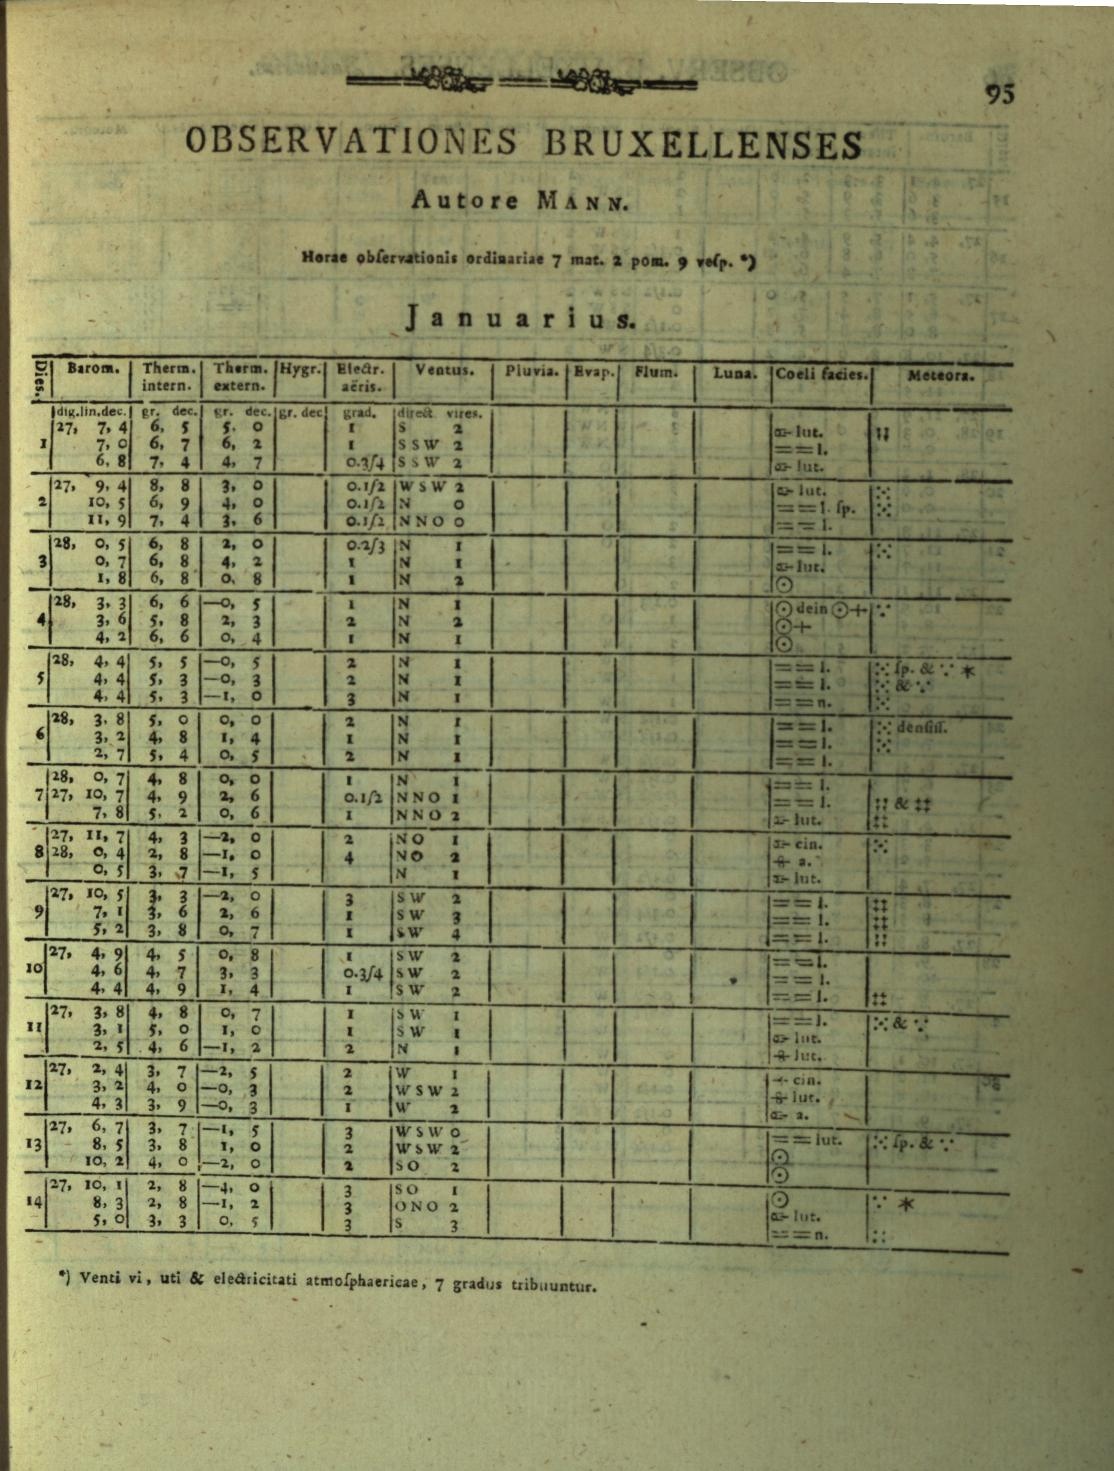 95
OBSERVATIONES BRUXELLENSES
Autore MANN.
Horae obſervationis ordinariae 7 mat. 2 pom. 9 veſp. *)
Januarius.
Dies. | Barom. | Therm. intern. | Therm. extern. | Hygr. | Electr. aëris. | Ventus. | Pluvia. | Evap. | Flum. | Luna. | Coeli facies. | Meteora.
dig.lin.dec. | gr. dec. | gr. dec. | gr. dec | grad. | direct. vires.
27, 7, 4 | 6, 5 | 5, 0 | 1 | S 2 | lut.
1 | 7, 0 | 6, 7 | 6, 2 | 1 | S S W 2 | == l.
6, 8 | 7, 4 | 4, 7 | 0.3/4 | S S W 2 | lut.
27, 9, 4 | 8, 8 | 3, 0 | 0.1/2 | W S W 2 | lut. | ⁙
2 | 10, 5 | 6, 9 | 4, 0 | 0.1/2 | N 0 | == l. ſp. | ⁙
11, 9 | 7, 4 | 3, 6 | 0.1/2 | N N O 0 | == l.
28, 0, 5 | 6, 8 | 2, 0 | 0.2/3 | N 1 | == l. | ⁙
3 | 0, 7 | 6, 8 | 4, 2 | 1 | N 1 | lut.
1, 8 | 6, 8 | 0, 8 | 1 | N 2 | ☉
28, 3, 3 | 6, 6 | —0, 5 | 1 | N 1 | ☉ dein ☉+ | ∵
4 | 3, 6 | 5, 8 | 2, 3 | 2 | N 2 | ☉+
4, 2 | 6, 6 | 0, 4 | 1 | N 1 | ☉
28, 4, 4 | 5, 5 | —0, 5 | 2 | N 1 | == l. | ⁙ ſp. & ∵ *
5 | 4, 4 | 5, 3 | —0, 3 | 2 | N 1 | == l. | ⁙ & ∵
4, 4 | 5, 3 | —1, 0 | 3 | N 1 | == n. | ⁙
28, 3, 8 | 5, 0 | 0, 0 | 2 | N 1 | == l. | ⁙ denſiſſ.
6 | 3, 2 | 4, 8 | 1, 4 | 1 | N 1 | == l. | ⁙
2, 7 | 5, 4 | 0, 5 | 2 | N 1 | == l.
28, 0, 7 | 4, 8 | 0, 0 | 1 | N 1 | == l.
7 | 27, 10, 7 | 4, 9 | 2, 6 | 0.1/2 | N N O 1 | == l. | &
7, 8 | 5, 2 | 0, 6 | 1 | N N O 2 | lut.
27, 11, 7 | 4, 3 | —2, 0 | 2 | N O 1 | cin. | ⁙
8 | 28, 0, 4 | 2, 8 | —1, 0 | 4 | N O 2 | a.
0, 5 | 3, 7 | —1, 5 | N 1 | lut.
27, 10, 5 | 3, 3 | —2, 0 | 3 | S W 2 | == l.
9 | 7, 1 | 3, 6 | 2, 6 | 1 | S W 3 | == l.
5, 2 | 3, 8 | 0, 7 | 1 | S W 4 | == l.
27, 4, 9 | 4, 5 | 0, 8 | 1 | S W 2 | == l.
10 | 4, 6 | 4, 7 | 3, 3 | 0.3/4 | S W 2 | == l.
4, 4 | 4, 9 | 1, 4 | 1 | S W 2 | == l.
27, 3, 8 | 4, 8 | 0, 7 | 1 | S W 1 | == l. | ⁙ & ∵
11 | 3, 1 | 5, 0 | 1, 0 | 1 | S W 1 | lut.
2, 5 | 4, 6 | —1, 2 | 2 | N 1 | lut.
27, 2, 4 | 3, 7 | —2, 5 | 2 | W 1 | cin.
12 | 3, 2 | 4, 0 | —0, 3 | 2 | W S W 2 | lut.
4, 3 | 3, 9 | —0, 3 | 1 | W 2 | a.
27, 6, 7 | 3, 7 | —1, 5 | 3 | W S W 0 | == lut. | ⁙ ſp. & ∵
13 | 8, 5 | 3, 8 | 1, 0 | 2 | W S W 2 | ☉
10, 2 | 4, 0 | —2, 0 | 2 | S O 2 | ☉
27, 10, 1 | 2, 8 | —4, 0 | 3 | S O 1 | ☉ | ∵ *
14 | 8, 3 | 2, 8 | —1, 2 | 3 | O N O 2 | lut.
5, 0 | 3, 3 | 0, 5 | 3 | S 3 | == n. | ∷
*) Venti vi, uti & electricitati atmoſphaericae, 7 gradus tribuuntur.